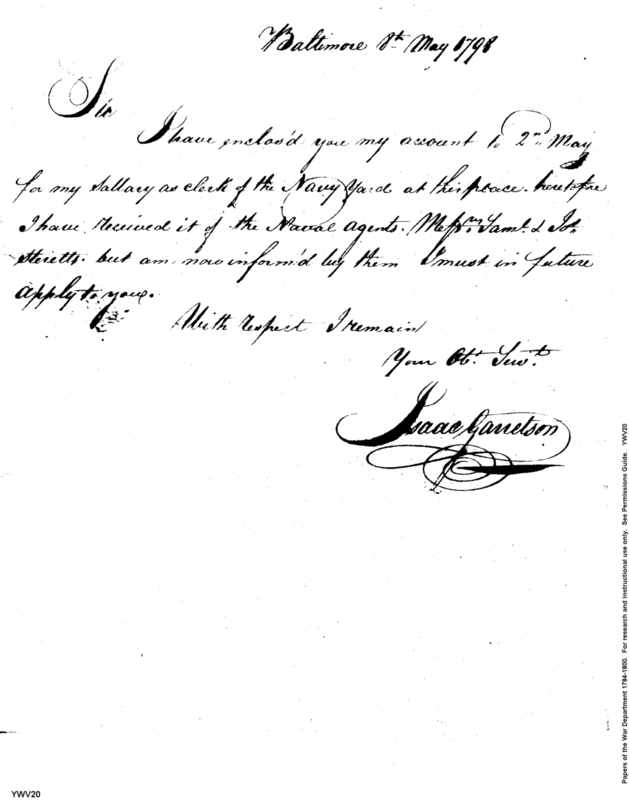 Baltimore 8th May 1798
Sir
I have enclos'd you my account to 2nd May
for my Sallary as clerk of the Navy Yard at this place. heretofore
I have received it of the Naval agents. Messrs. Saml. & Jos.
Steretts. but am now inform'd by them I must in future
apply to you.
With respect I remain
Your Obt. Servt.
Isaac Garretson
YWV20
Papers of the War Department 1784-1800. For research and instructional use only. See Permissions Guide. YWV20